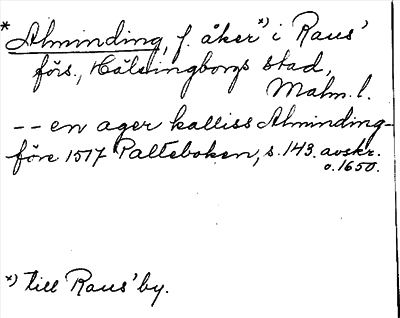 * Alminding, f. åker *) i Raus'
förs., Hälsingborgs stad,
Malm. l.
-- en ager kalliss Alminding -
före 1517 Palteboken, s. 143. avskr.
o. 1650.
*) till Raus' by.